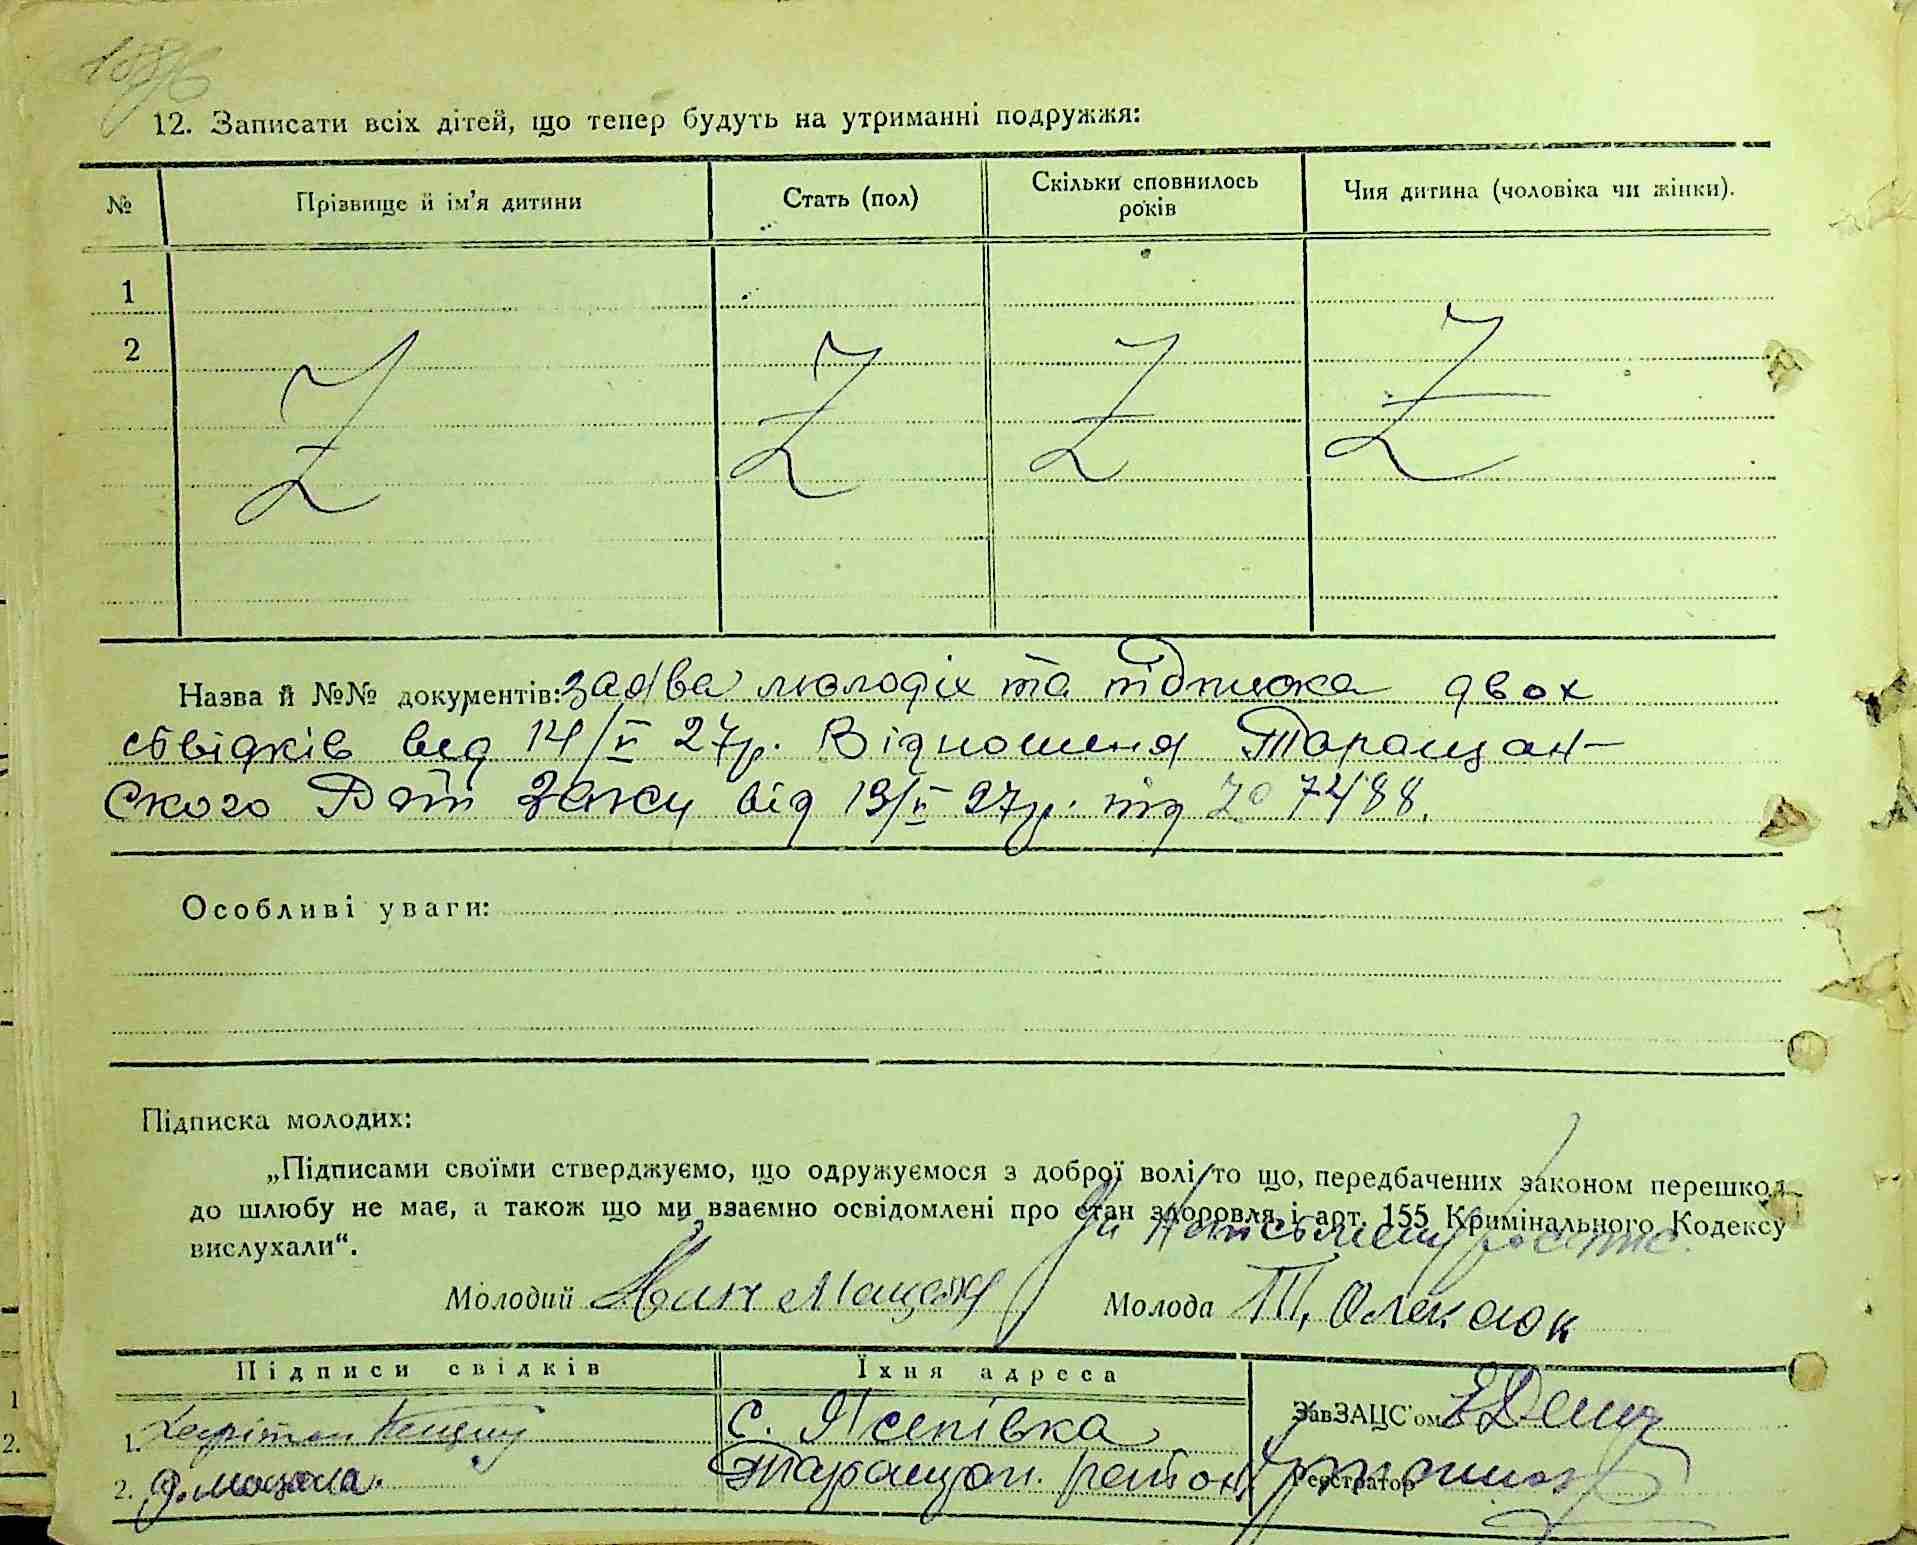 12. Записати всіх дітей, що тепер будуть на утриманні подружжя:
№ Прізвище й ім'я дитини Стать (пол) Скільки сповнилось років Чия дитина (чоловіка чи жінки).
1
2
Z Z Z Z
Назва й №№ документів: заява молодіх та підписка двох
свідків від 14/V 27р. Відношеня Таращан-
ского Рай Загсу від 13/V 27р. під № 7488.
Особливі уваги:
Підписка молодих:
„Підписами своїми стверджуємо, що одружуємося з доброї волі, то що, передбачених законом перешкод
до шлюбу не має, а також що ми взаємно освідомлені про стан здоровля і арт. 155 Кримінального Кодексу
вислухали“.
Молодий Іван Мацела Молода Т. Олексюк
Підписи свідків Їхня адреса
1. Харітон С. Ясенівка ЗавЗАЦС'ом
2. Таращан. район Реєстратор